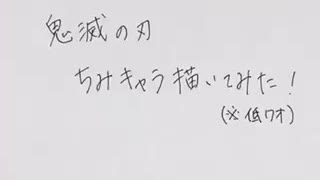 鬼滅の刃
ちみキャラ描いてみた!
(※低クオ)